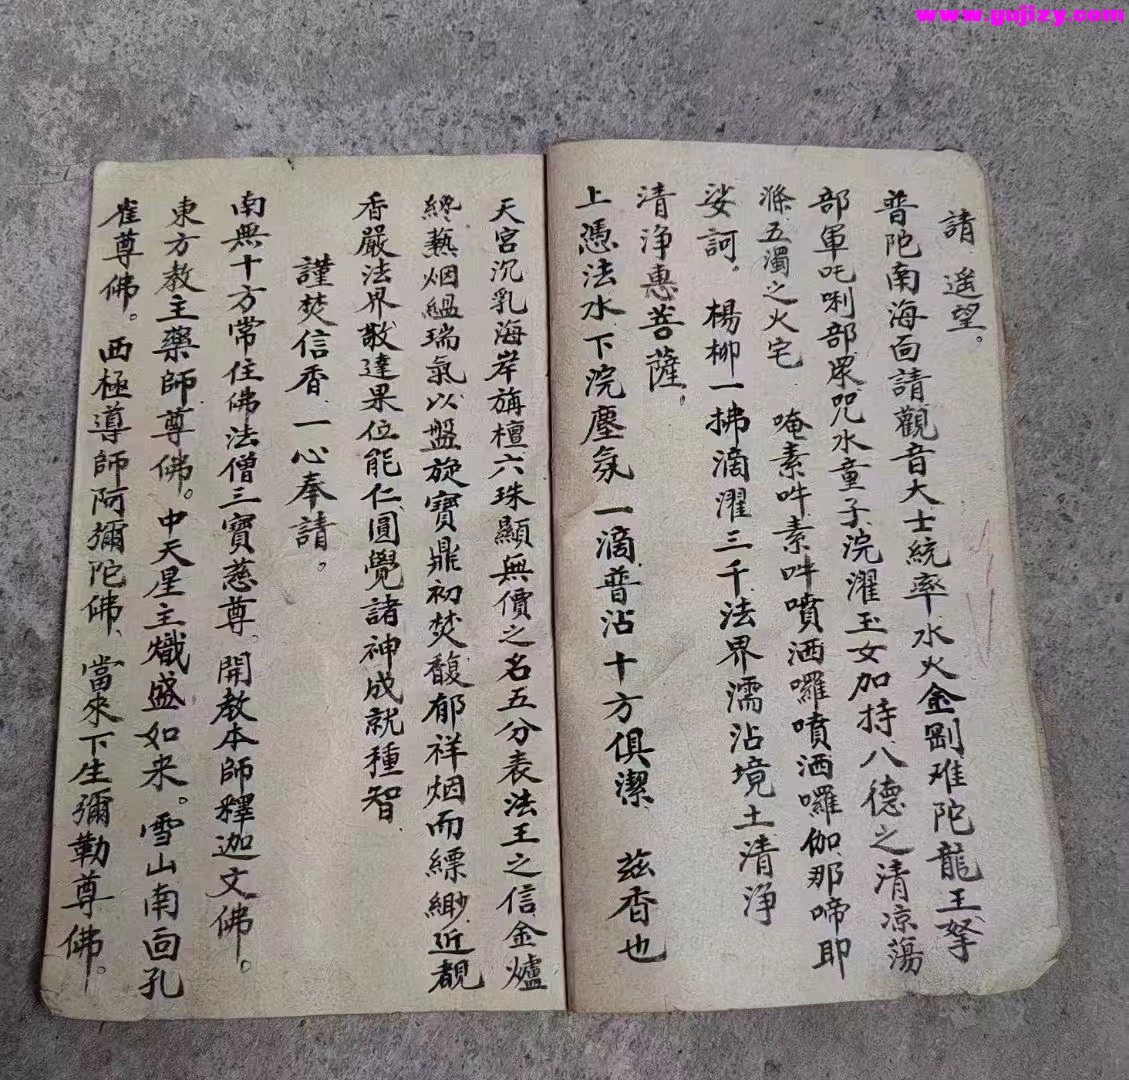 www.gujizy.com
請 遥望。
普陀南海面請觀音大士統率水火金剛难陀龍王拏
部軍吒唎部眾咒水童子浣濯玉女加持八德之清凉蕩
滌五濁之火宅 唵素吽素吽噴洒囉噴洒囉伽那啼耶
娑訶。楊柳一拂滴濯三千法界濡沾境土清浄
清浄惠菩薩。
上憑法水下浣塵氛一滴普沾十方俱潔 兹香也
天宮沉乳海岸旃檀六珠顯無價之名五分表法王之信金爐
纔藝烟緼瑞氣以盤旋寶鼎初焚馥郁祥烟而縹緲近覩
香嚴法界散達果位能仁圓覺諸神成就種智
謹焚信香一心奉請。
南無十方常住佛法僧三寶慈尊。開教本師釋迦文佛。
東方教主藥師尊佛。中天星主熾盛如来。雪山南面孔
雀尊佛。西極導師阿彌陀佛、當來下生彌勒尊佛。